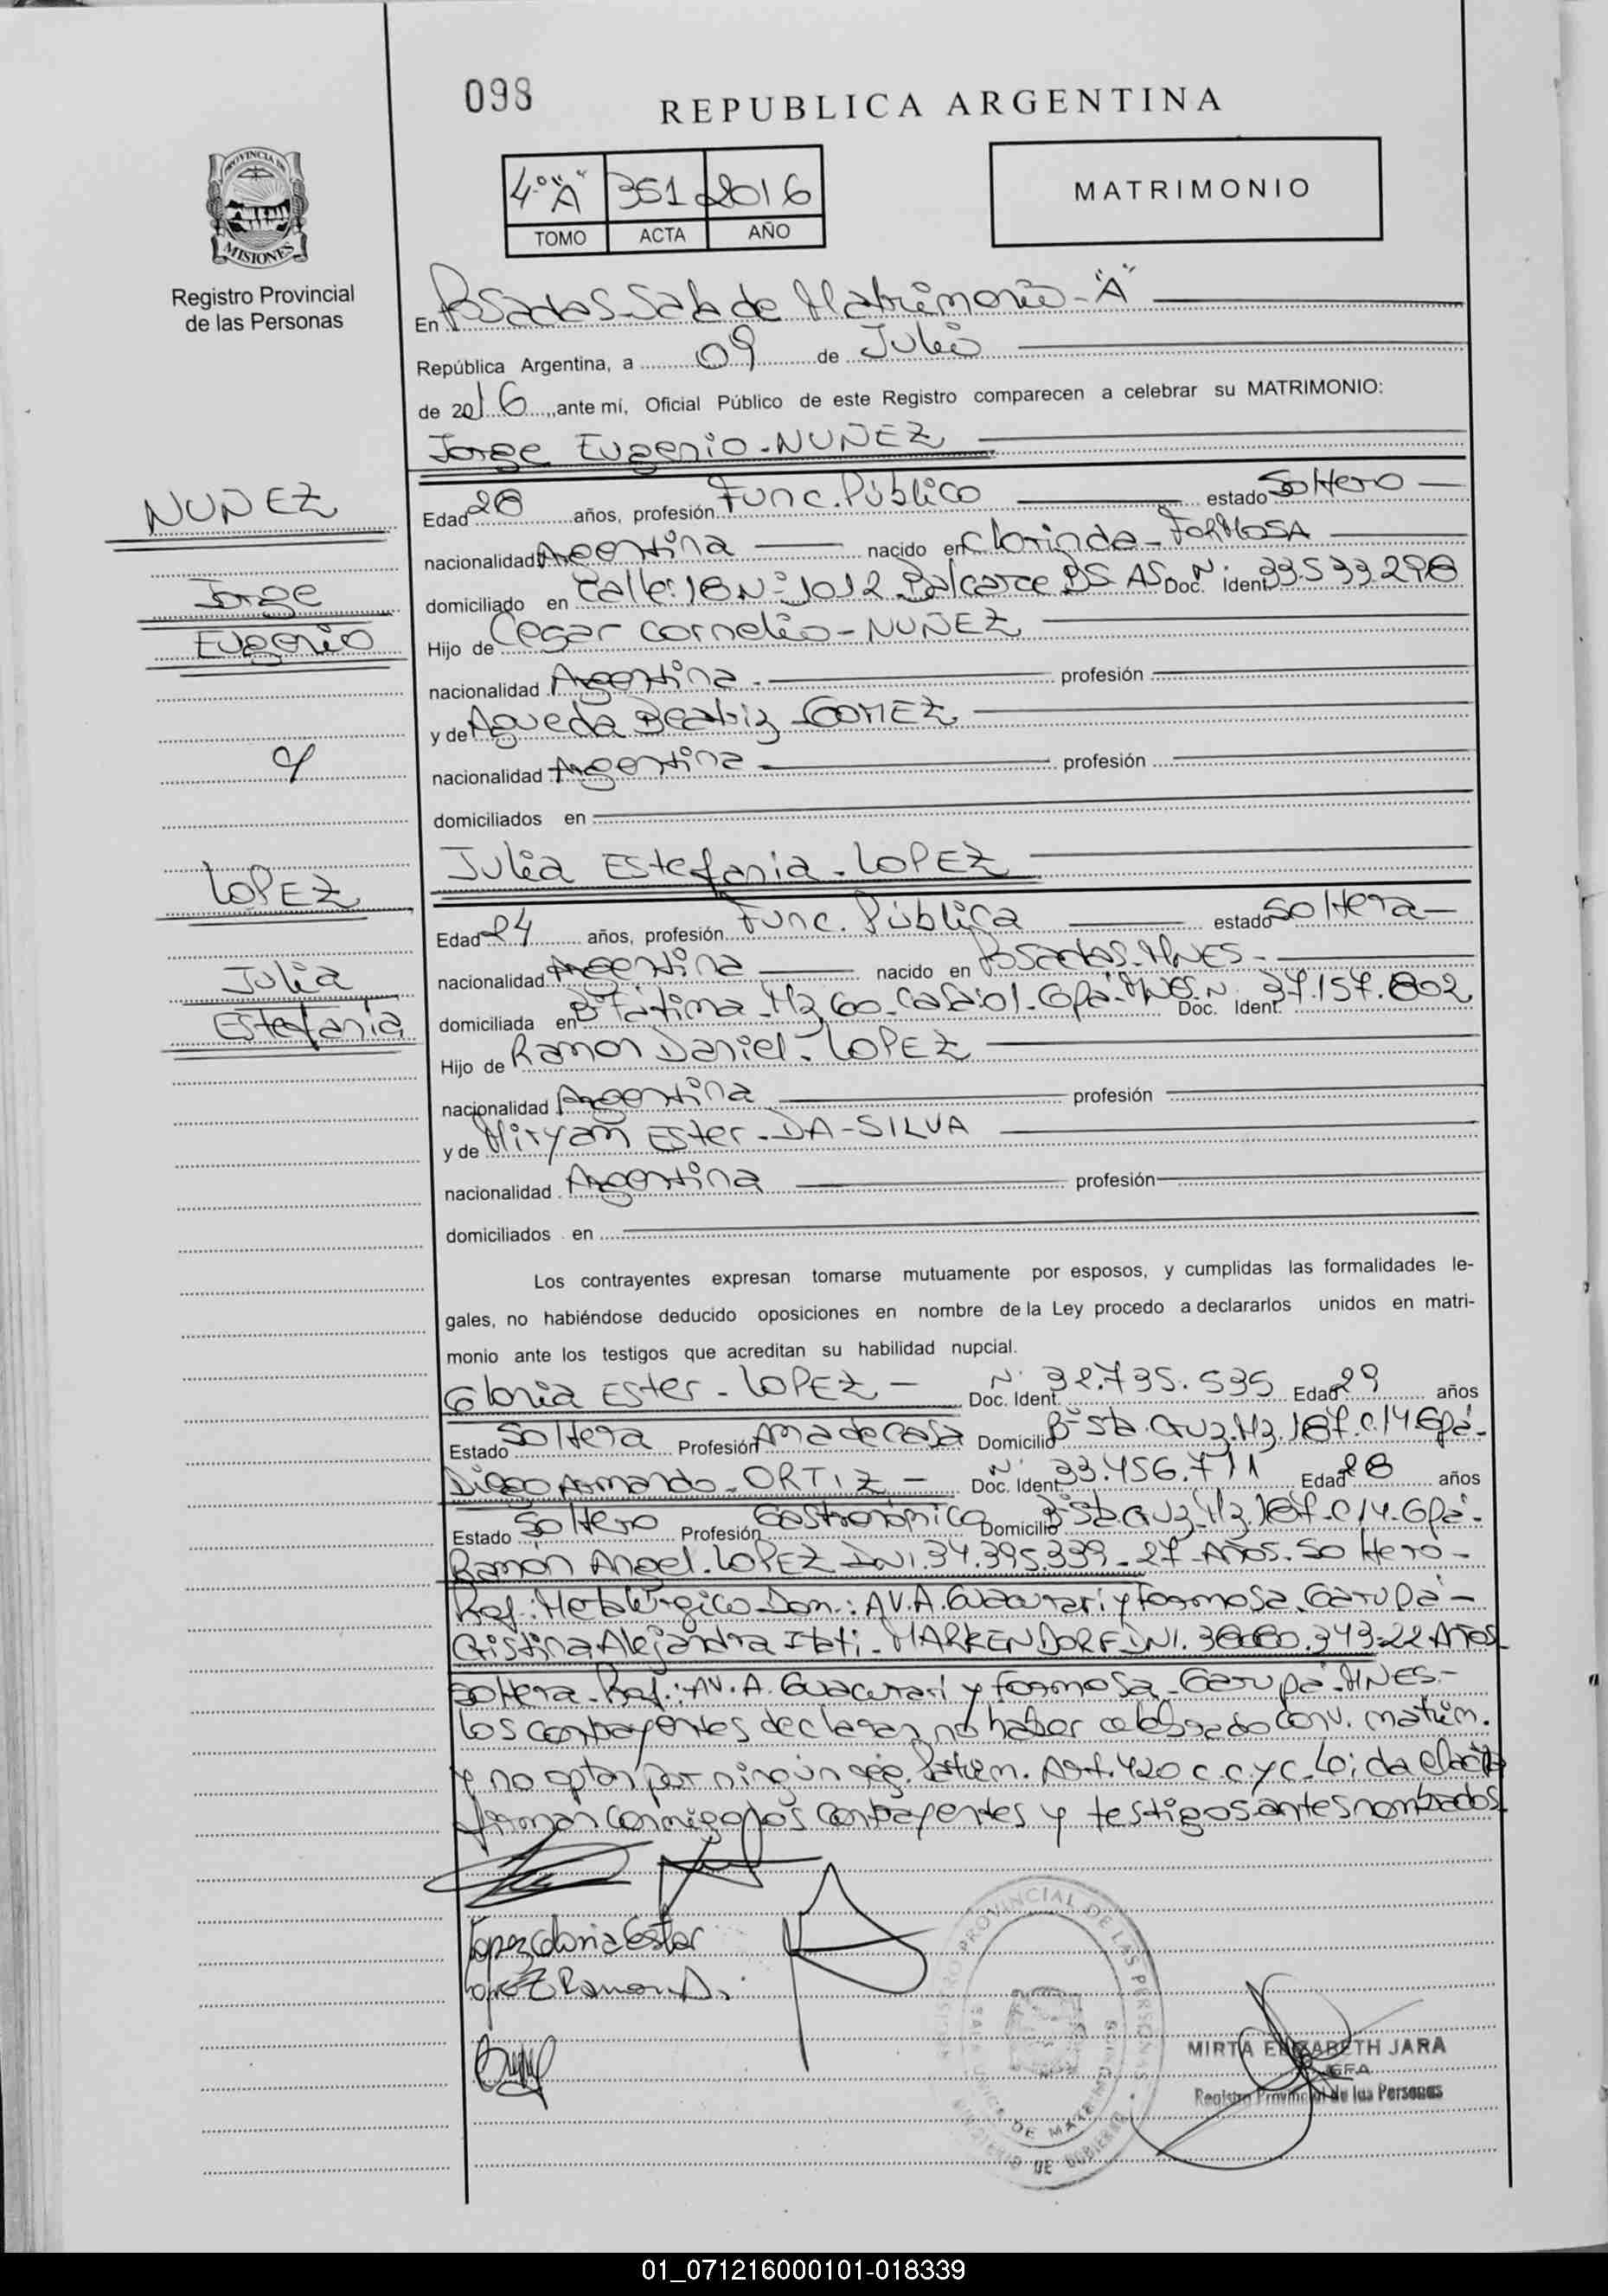 098
REPUBLICA ARGENTINA
PROVINCIA DE
MISIONES
4º "A" 351 2016
TOMO ACTA AÑO
MATRIMONIO
Registro Provincial
de las Personas
En Posadas Sala de Matrimonio - "A"
República Argentina, a 09 de Julio
de 2016, ante mí, Oficial Público de este Registro comparecen a celebrar su MATRIMONIO:
Jorge Eugenio - NUÑEZ
NUÑEZ
Jorge
Eugenio
y
LOPEZ
Julia
Estefania
Edad 28 años, profesión Func. Público estado Soltero
nacionalidad Argentina nacido en Clorinda - FORMOSA
domiciliado en Calle: 18 Nº 1012 Balcarce BS. AS. Doc. N. Ident. 33.533.298
Hijo de Cesar Cornelio - NUÑEZ
nacionalidad Argentina profesión
y de Agueda Beatriz GOMEZ
nacionalidad Argentina profesión
domiciliados en
Julia Estefania - LOPEZ
Edad 24 años, profesión Func. Pública estado Soltera
nacionalidad Argentina nacido en Posadas - MNES.
domiciliada en Bº Fátima - Mz 60 - Casa 01 - Gpá. MNES. Doc. N. Ident. 37.157.802
Hijo de Ramon Daniel - LOPEZ
nacionalidad Argentina profesión
y de Miryam Ester - DA-SILVA
nacionalidad Argentina profesión
domiciliados en
Los contrayentes expresan tomarse mutuamente por esposos, y cumplidas las formalidades le-
gales, no habiéndose deducido oposiciones en nombre de la Ley procedo a declararlos unidos en matri-
monio ante los testigos que acreditan su habilidad nupcial.
Gloria Ester - LOPEZ - Doc. N. Ident. 32.735.535 Edad 29 años
Estado Soltera Profesión Ama de Casa Domicilio Bº Sta. Cruz. Mz. 187. C. 14 Gpá -
Diego Armando - ORTIZ - Doc. N. Ident. 33.456.771 Edad 28 años
Estado Soltero Profesión Gastronómico Domicilio Bº Sta. Cruz. Mz. 187 - C 14. Gpá -
Ramón Angel. LOPEZ DNI. 34.395.339 - 27 - Años. Soltero -
Prof.: Metalúrgico Dom.: AV. A. Guacurarí y Formosa. Garupá -
Cristina Alejandra Itatí - MARKENDORF DNI. 343 - 22 Años
Soltera - AV. A. Guacurarí y Formosa - Garupá - MNES -
los contrayentes declaran no haber celebrado conv. matrim.
y no optan por ningún rég. Patrim. Art. 420 c.c. y c. Leída el acta
firman conmigo los contrayentes y testigos antes nombrados
Lopez Gloria Ester
Lopez Ramon A.
REGISTRO PROVINCIAL DE LAS PERSONAS
MINISTERIO DE GOBIERNO
MIRTA ELIZABETH JARA
JEFA
Registro Provincial de las Personas
01_071216000101-018339